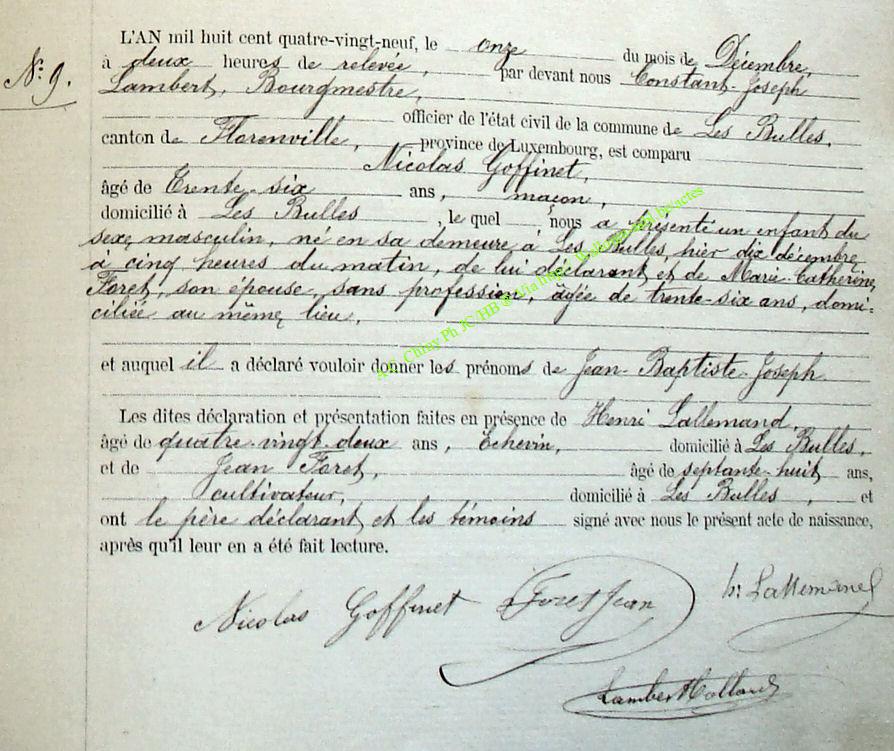 N.º 9.
L'AN mil huit cent quatre-vingt-neuf, le onze du mois de Décembre,
à deux heures de relevée, par devant nous Constant-Joseph
Lambert, Bourgmestre,
officier de l'état civil de la commune de Les Bulles,
canton de Florenville, province de Luxembourg, est comparu
Nicolas Goffinet,
âgé de Trente-six ans, maçon,
domicilié à Les Bulles, le quel nous a présenté un enfant du
sexe masculin, né en sa demeure à Les Bulles, hier dix décembre
à cinq heures du matin, de lui déclarant et de Marie-Catherine
Foret, son épouse, sans profession, âgée de trente-six ans, domi-
ciliée au même lieu,
et auquel il a déclaré vouloir donner les prénoms de Jean-Baptiste-Joseph
Les dites déclaration et présentation faites en présence de Henri Lallemand,
âgé de quatre-vingt-deux ans, Echevin, domicilié à Les Bulles,
et de Jean Foret, âgé de septante-huit ans,
cultivateur, domicilié à Les Bulles, et
ont le père déclarant et les témoins signé avec nous le présent acte de naissance,
après qu'il leur en a été fait lecture.
Nicolas Goffinet Foret Jean h: Lallemand
Lambert